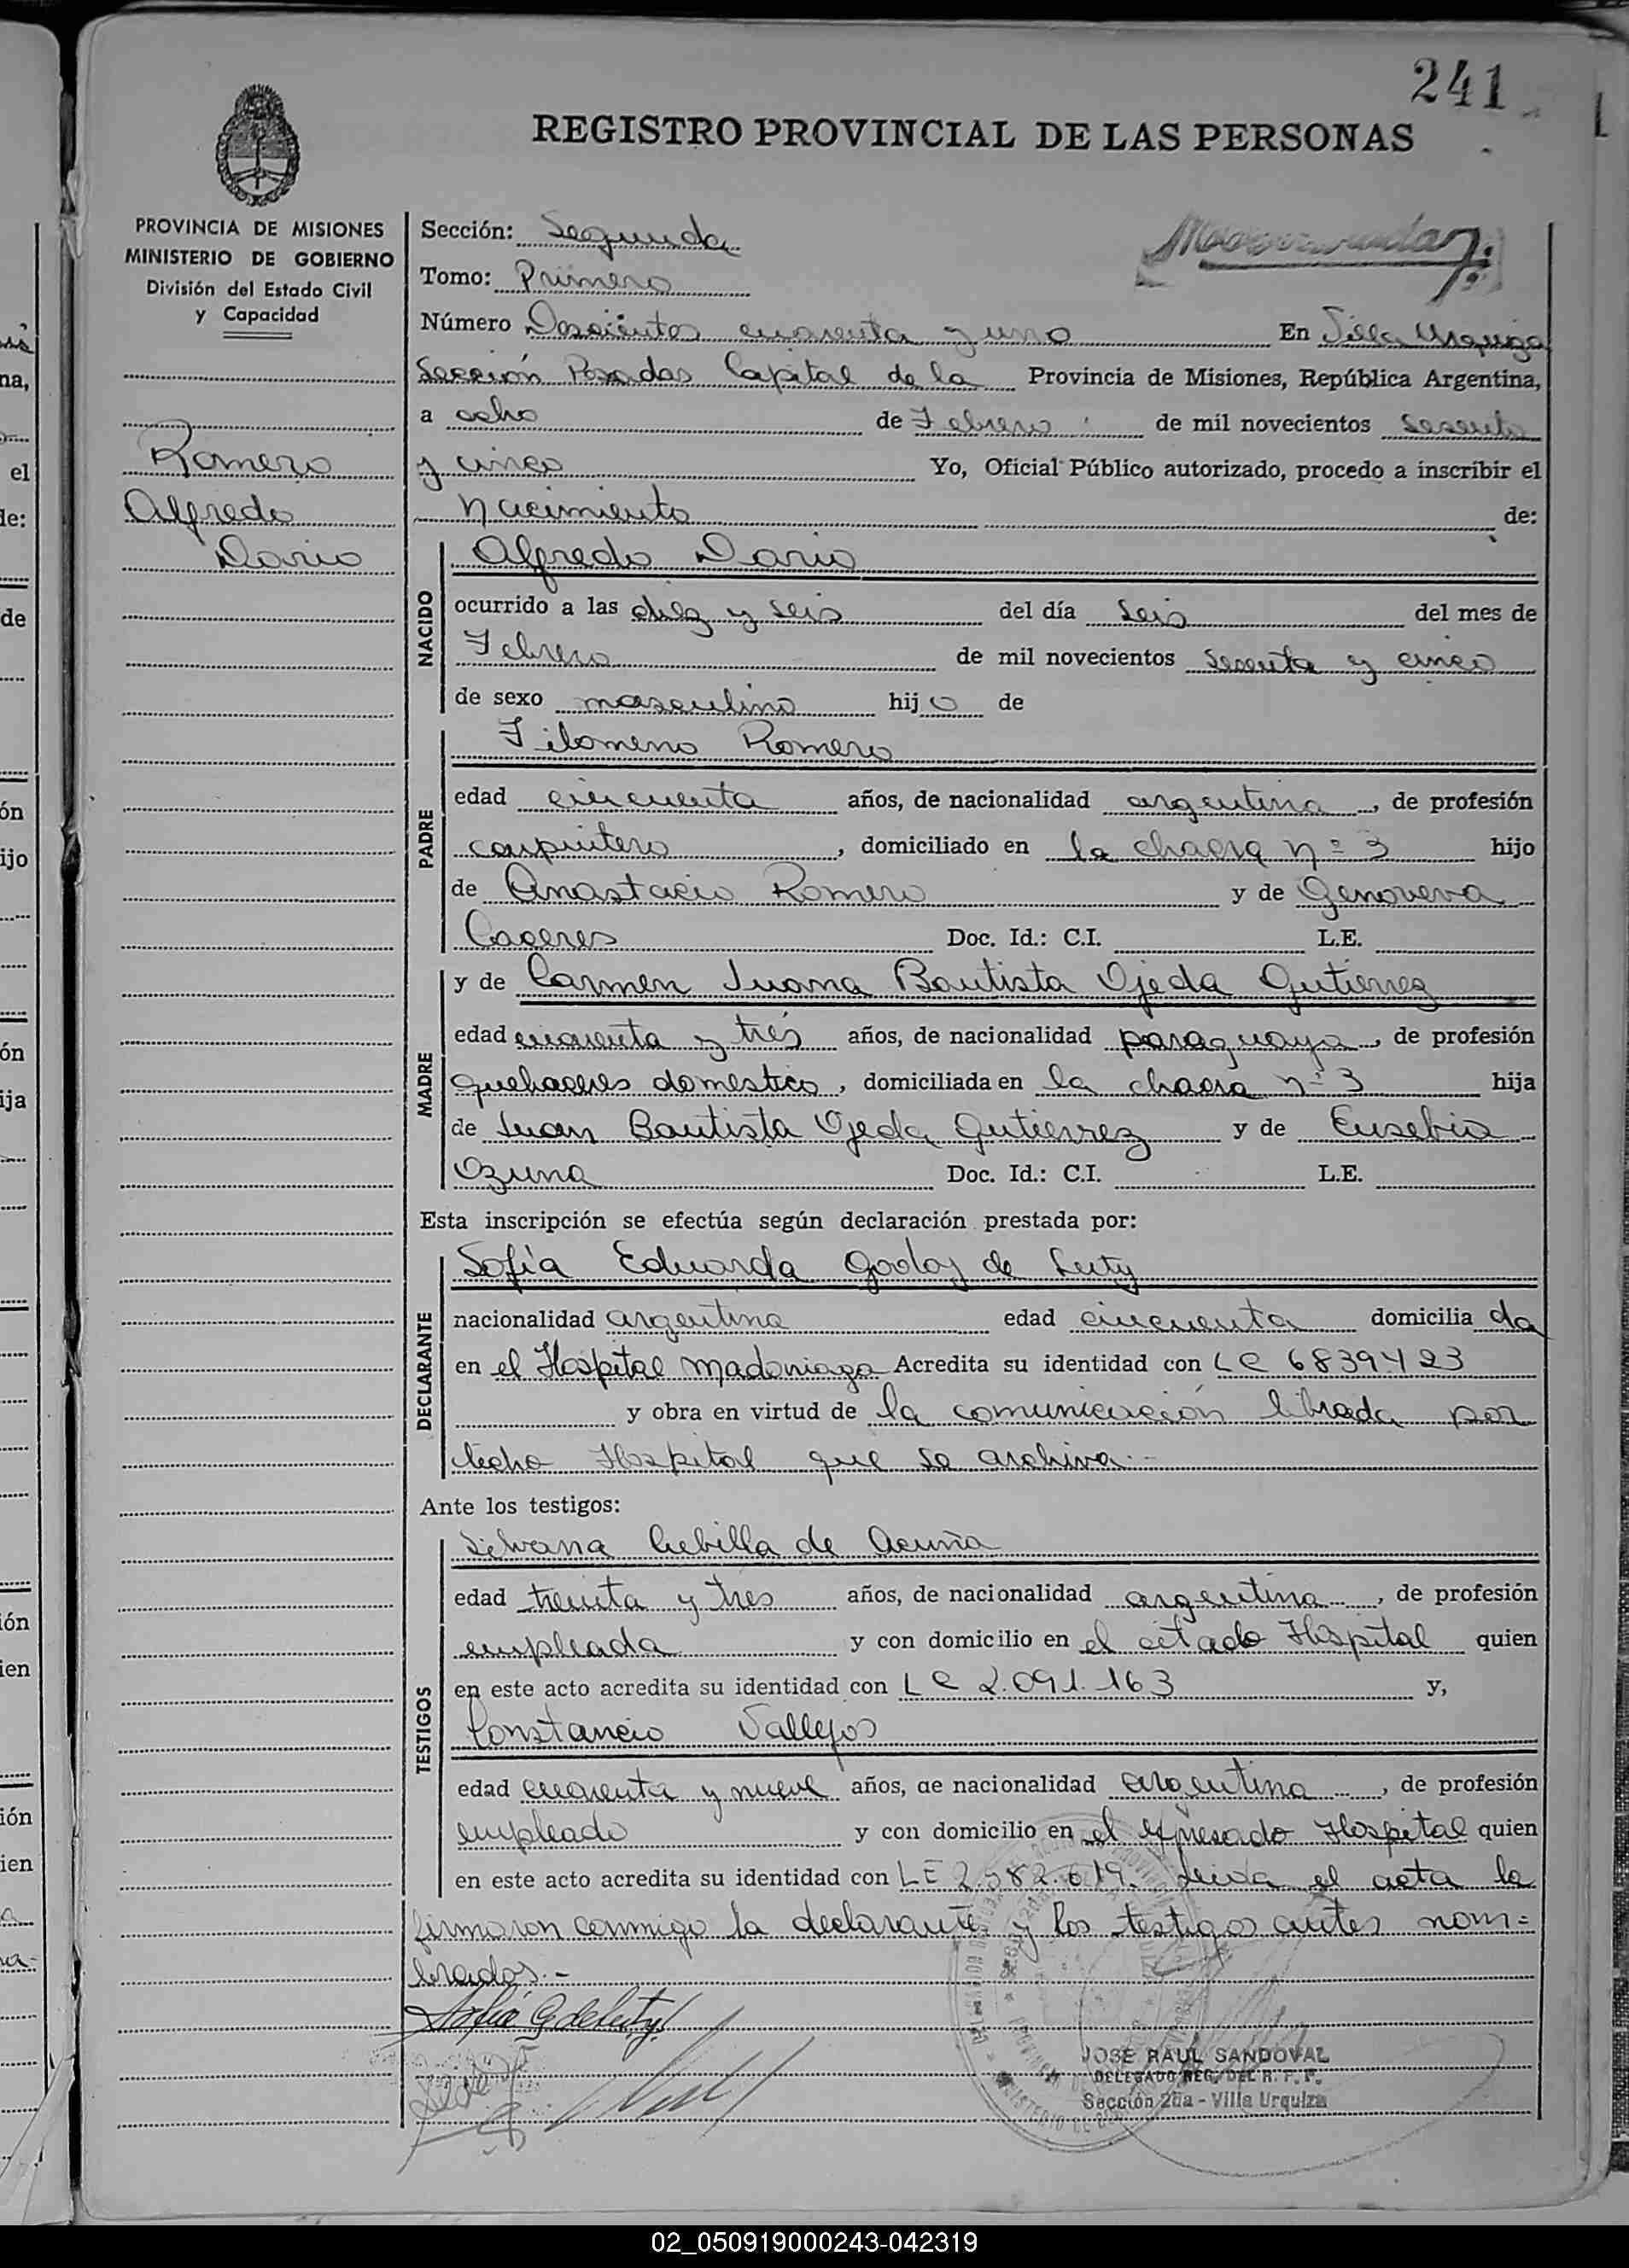 241
REGISTRO PROVINCIAL DE LAS PERSONAS
PROVINCIA DE MISIONES
MINISTERIO DE GOBIERNO
División del Estado Civil
y Capacidad
Romero
Alfredo
Dario
Sección: Segunda
Tomo: Primero
Número Doscientos cuarenta y uno En Villa Urquiza
Sección Posadas Capital de la Provincia de Misiones, República Argentina,
a ocho de Febrero de mil novecientos sesenta
y cinco Yo, Oficial Público autorizado, procedo a inscribir el
nacimiento de:
NACIDO
Alfredo Dario
ocurrido a las diez y seis del día seis del mes de
Febrero de mil novecientos sesenta y cinco
de sexo masculino hijo de
PADRE
Filomeno Romero
edad cincuenta años, de nacionalidad argentina, de profesión
carpintero, domiciliado en la chacra nº 3 hijo
de Anastacio Romero y de Genoveva
Caceres Doc. Id.: C.I. L.E.
MADRE
y de Carmen Juana Bautista Ojeda Gutierrez
edad cuarenta y tres años, de nacionalidad paraguaya, de profesión
quehaceres domestico, domiciliada en la chacra nº 3 hija
de Juan Bautista Ojeda Gutierrez y de Eusebia
Ozuna Doc. Id.: C.I. L.E.
Esta inscripción se efectúa según declaración prestada por:
DECLARANTE
Sofía Eduarda Godoy de Luty
nacionalidad argentina edad cincuenta domiciliada
en el Hospital Madariaga Acredita su identidad con LC 6839423
y obra en virtud de la comunicación librada por
dicho Hospital que se archiva.-
Ante los testigos:
TESTIGOS
Silvana Cubilla de Acuña
edad treinta y tres años, de nacionalidad argentina, de profesión
empleada y con domicilio en el citado Hospital quien
en este acto acredita su identidad con LC 2.091.163 y,
Constancio Vallejos
edad cuarenta y nueve años, de nacionalidad argentina, de profesión
empleado y con domicilio en el expresado Hospital quien
en este acto acredita su identidad con LE 2.582.619. Leida el acta la
firmaron conmigo la declarante y los testigos antes nom=
brados.-
Sofia G de Luty
JOSE RAUL SANDOVAL
DELEGADO REG. DEL R. P. P.
Sección 2da - Villa Urquiza
02_050919000243-042319